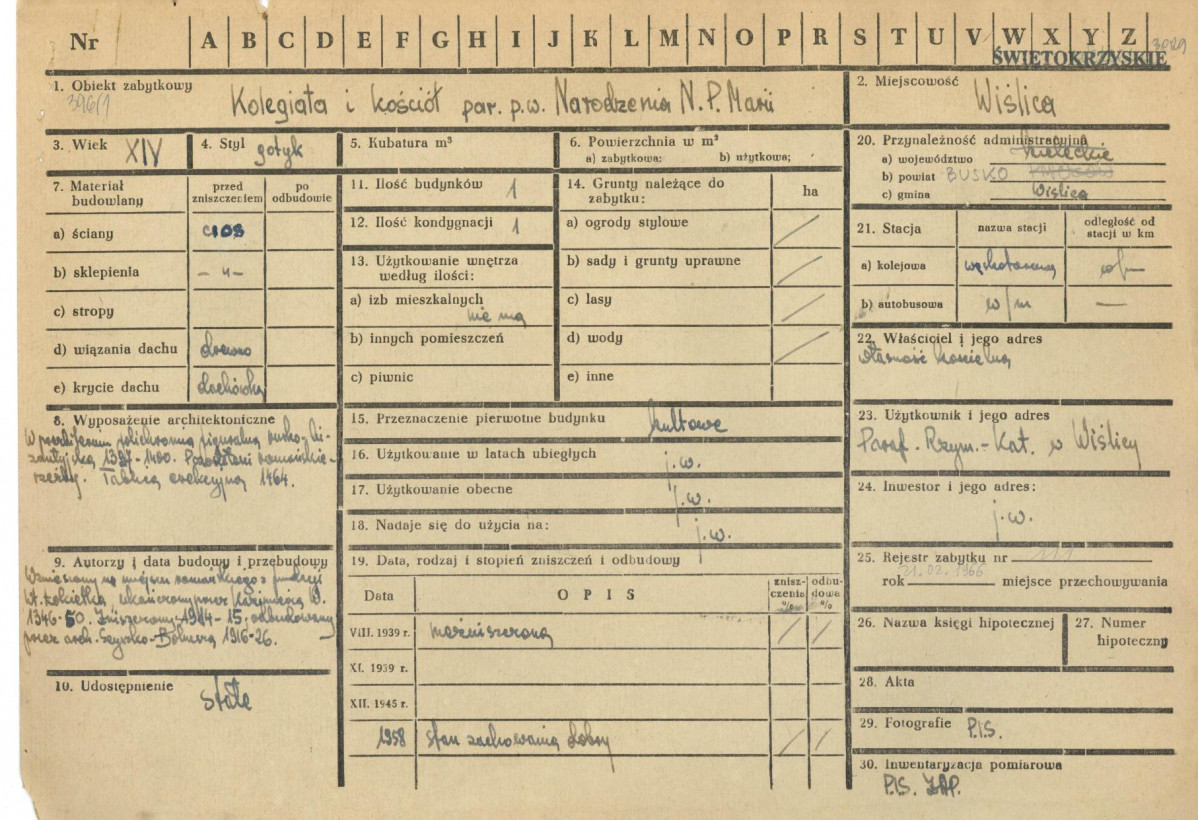 Nr A B C D E F G H I J K L M N O P R S T U V W X Y Z
ŚWIĘTOKRZYSKIE
1. Obiekt zabytkowy
396/1
Kolegiata i kościół par. p.w. Narodzenia N.P. Marii
2. Miejscowość
Wiślica
3. Wiek XIV
4. Styl gotyk
5. Kubatura m³
6. Powierzchnia w m²
a) zabytkowa: b) użytkowa;
20. Przynależność administracyjna
a) województwo kieleckie
b) powiat BUSKO
c) gmina Wiślica
7. Materiał budowlany
przed zniszczeniem
po odbudowie
a) ściany cios
b) sklepienia – " –
c) stropy
d) wiązania dachu drewno
e) krycie dachu dachówka
11. Ilość budynków 1
12. Ilość kondygnacji 1
13. Użytkowanie wnętrza
według ilości:
a) izb mieszkalnych
nie ma
b) innych pomieszczeń
c) piwnic
14. Grunty należące do
zabytku:
ha
a) ogrody stylowe /
b) sady i grunty uprawne /
c) lasy /
d) wody /
e) inne
21. Stacja
nazwa stacji
odległość od
stacji w km
a) kolejowa wąskotorowa
b) autobusowa w/m —
22. Właściciel i jego adres
własność kościelna
8. Wyposażenie architektoniczne
W prezbiterium polichromia figuralna rusko-bi-
zantyjska 1397-1400. Pozostałości romańskie-
rzeźby. Tablica erekcyjna 1464.
15. Przeznaczenie pierwotne budynku kultowe
16. Użytkowanie w latach ubiegłych j.w.
17. Użytkowanie obecne j.w.
18. Nadaje się do użycia na: j.w.
23. Użytkownik i jego adres
Paraf. Rzym.-Kat. w Wiślicy
24. Inwestor i jego adres:
j.w.
9. Autorzy i data budowy i przebudowy
Wzniesiony na miejscu romańskiego z fundacji
Wł. Łokietka, ukończony przez Kazimierza W.
1346-50. Zniszczony 1914-15, odbudowany
przez arch. Szyszko-Bohusza 1916-26.
10. Udostępnienie
stałe
19. Data, rodzaj i stopień zniszczeń i odbudowy
Data
OPIS
znisz-
czenia
%
odbu-
dowa
%
VIII. 1939 r. niezniszczona / /
XI. 1939 r.
XII. 1945 r.
1958 stan zachowania dobry / /
25. Rejestr zabytku nr 111
21.02.1966
rok miejsce przechowywania
26. Nazwa księgi hipotecznej
27. Numer
hipoteczny
28. Akta
29. Fotografie P.I.S.
30. Inwentaryzacja pomiarowa
P.I.S. ZAP.